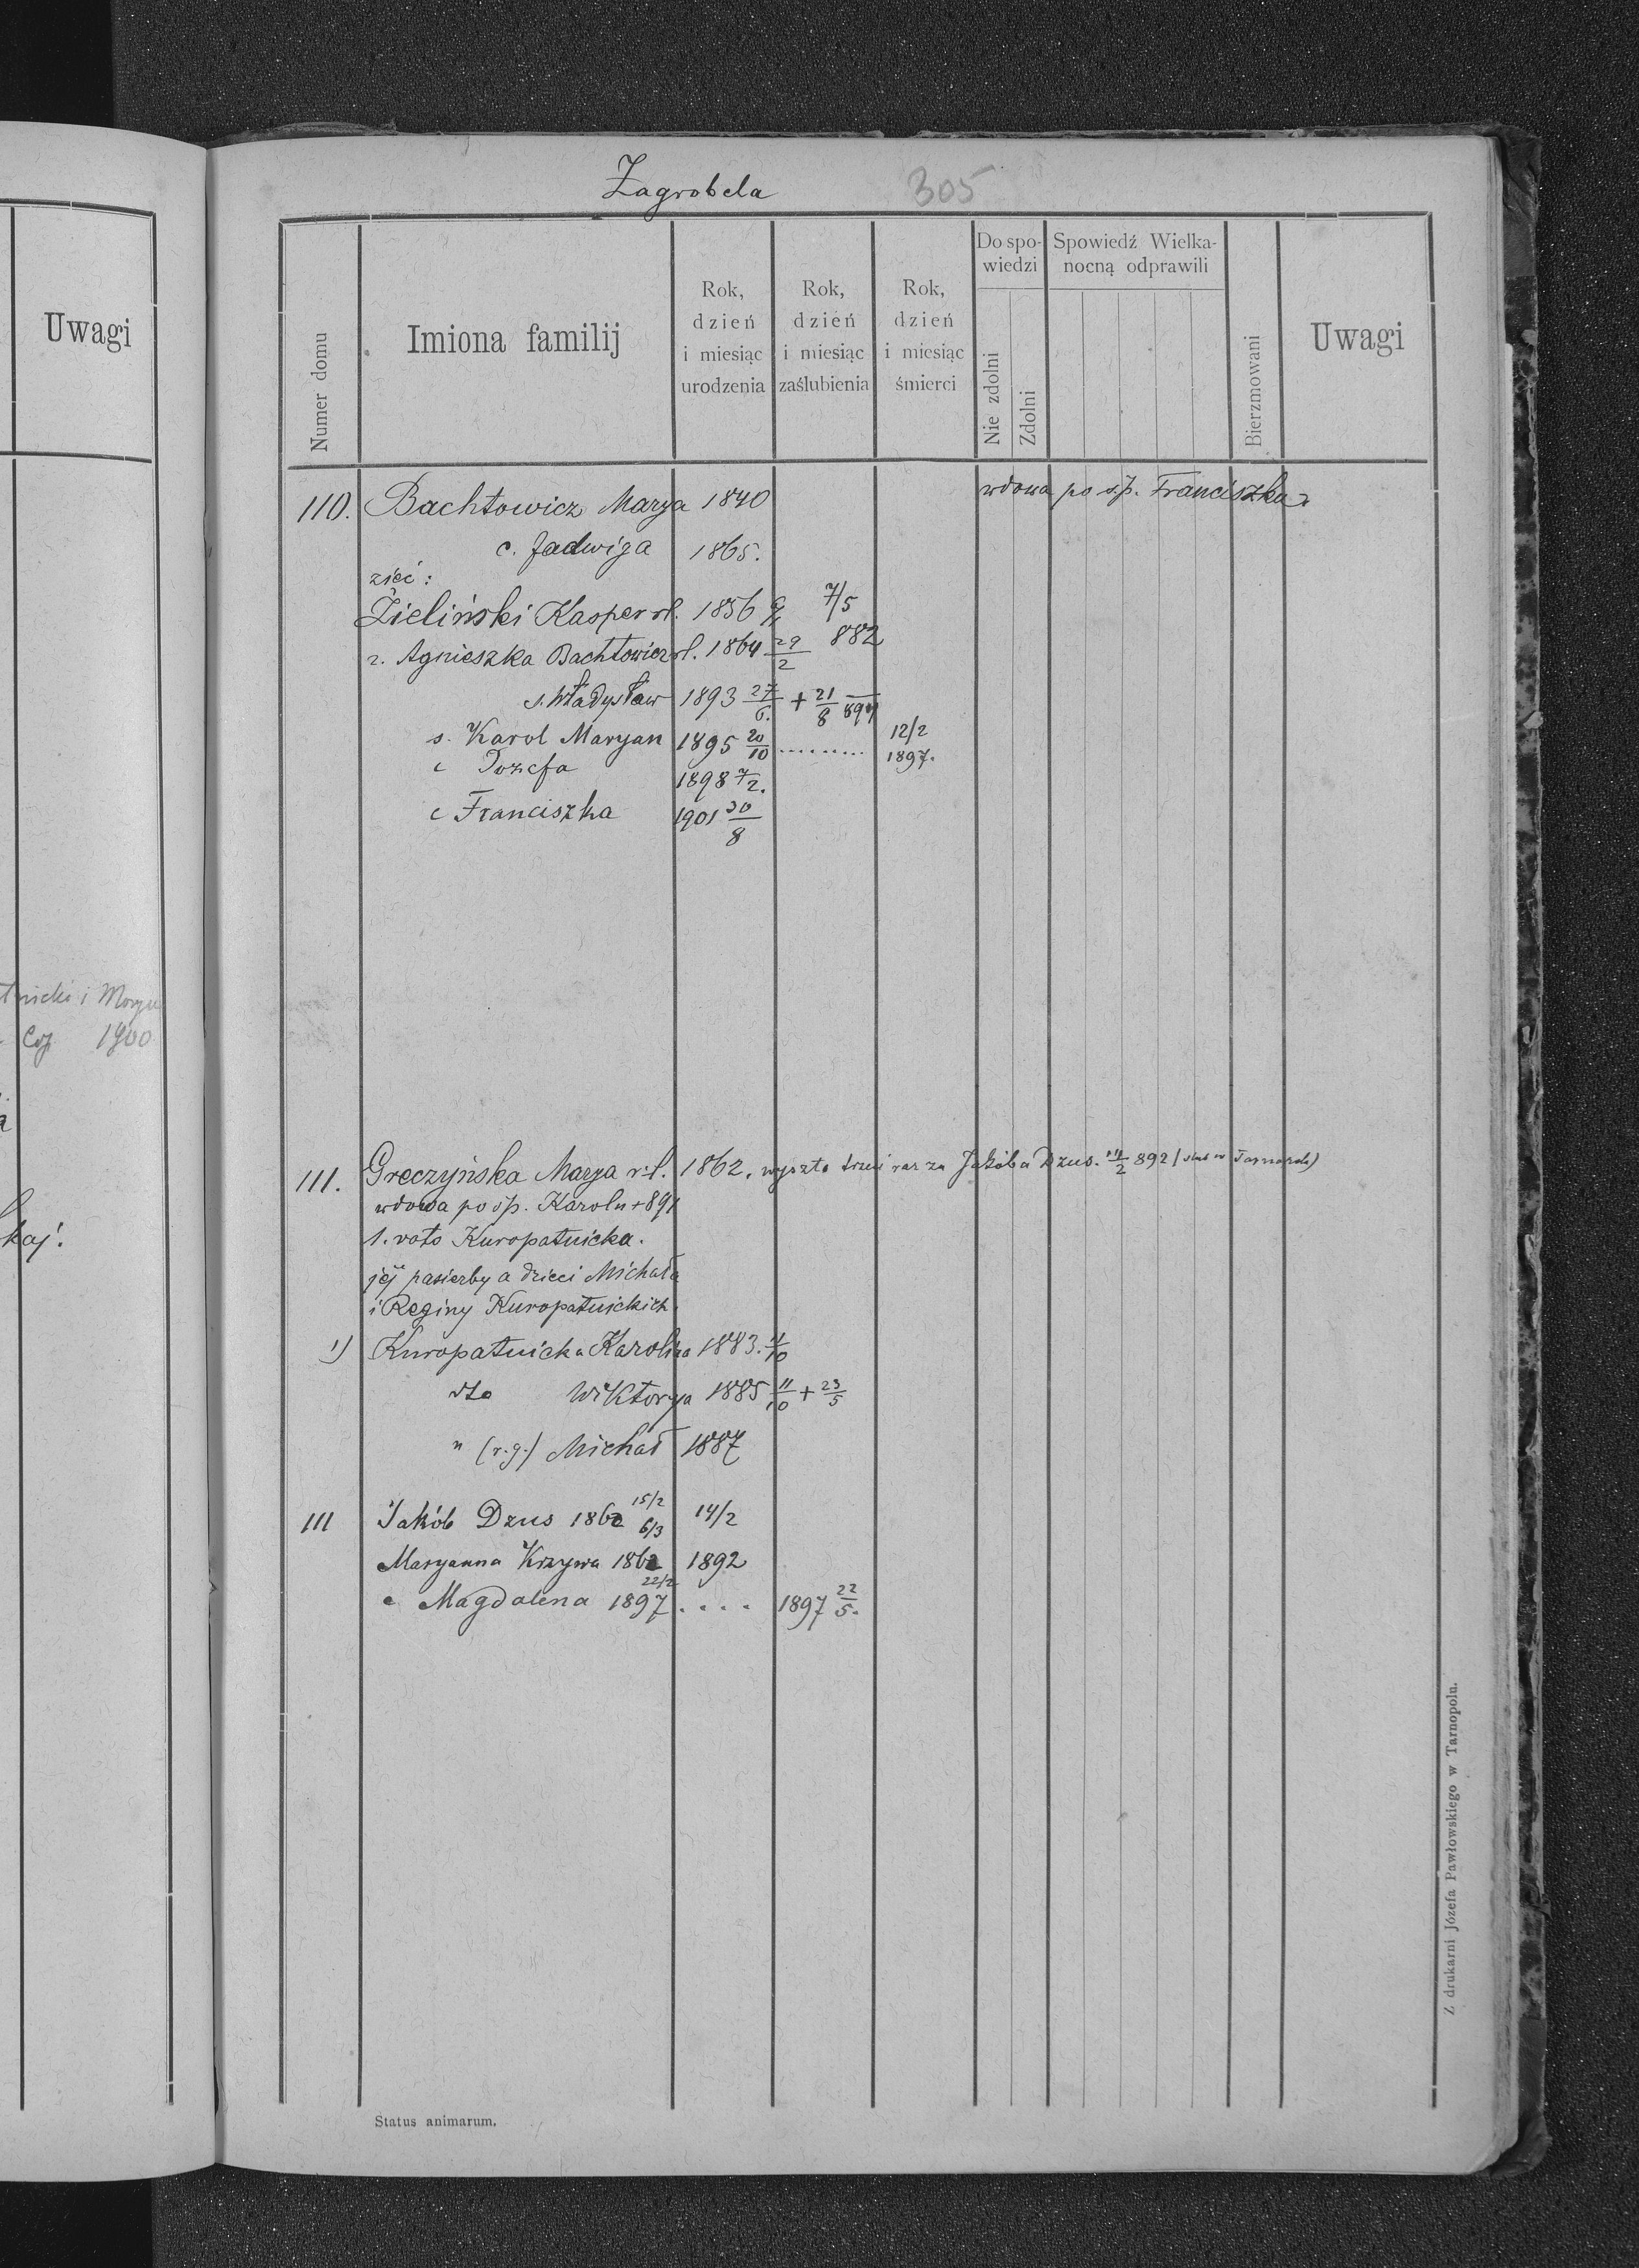 Uwagi
1900
kaj.
Zagrobela
305
Numer domu
Imiona familij
Rok,
dzień
i miesiąc
urodzenia
Rok,
dzień
i miesiąc
zaślubienia
Rok,
dzień
i miesiąc
śmierci
Do spo-
wiedzi
Nie zdolni
Zdolni
Spowiedź Wielka-
nocną odprawili
Bierzmowani
Uwagi
110. Bachtowicz Marya 1840 wdowa po ś.p. Franciszku
c. Jadwiga 1865.
zięć:
Zieliński Kasper rł. 1856 7/5
ż. Agnieszka Bachtowicz rł. 1864 29/2 882
s. Władysław 1893 27/6. + 21/8 894
s. Karol Maryan 1895 20/10 ......... 12/2 1897.
c Józefa 1898 7/2.
c Franciszka 1901 30/8
111. Greczyńska Marya r.ł. 1862. wyszła trzeci raz za Jakóba Dzus. 14/2 892
wdowa po śp. Karolu + 891
1. voto Kuropatnicka.
jéj pasierby a dzieci Michała
i Reginy Kuropatnickich.
1) Kuropatnicka Karolina 1883. 4/10
dto Wiktorya 1885 11/10 + 23/5
" (r.g.) Michał 1887
111 Jakób Dzus 1862 15/2 6/3 14/2
Maryanna Krzywa 1862 1892
c Magdalena 1897 22/2 .... 1897 22/5.
Status animarum.
Z drukarni Józefa Pawłowskiego w Tarnopolu.